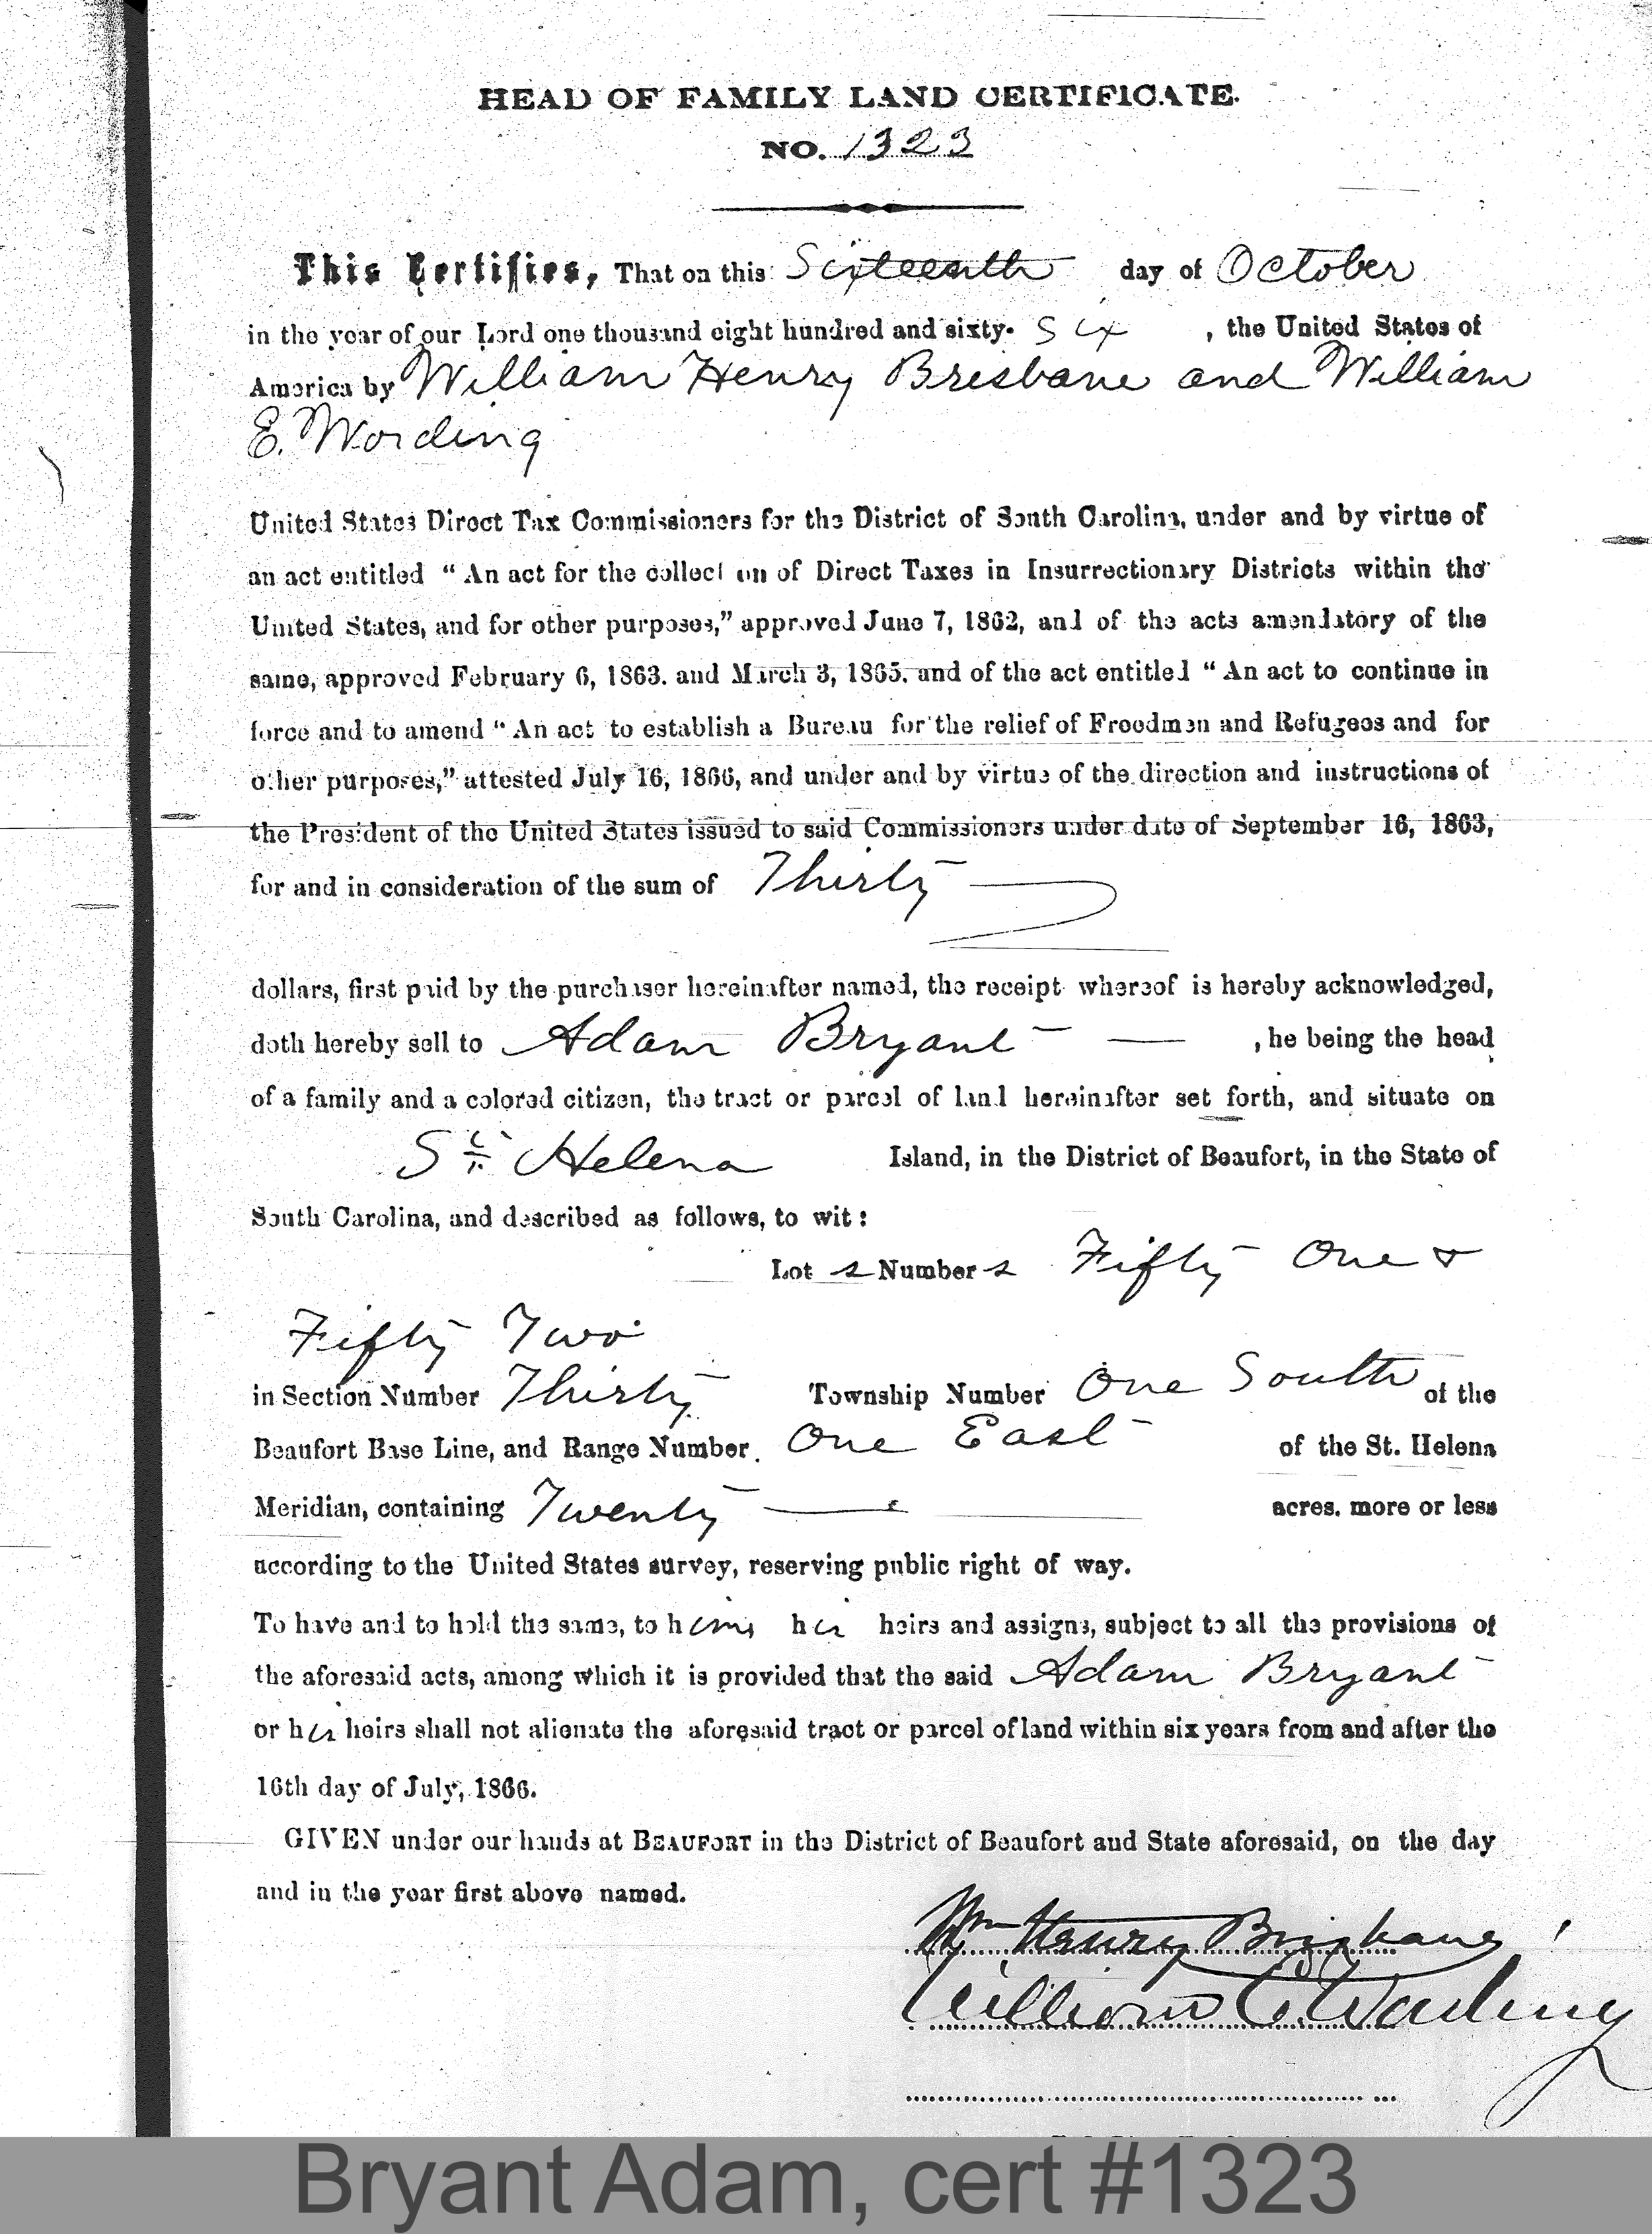 HEAD OF FAMILY LAND CERTIFICATE.
NO. 1323
This Certifies, That on this Sixteenth day of October
in the year of our Lord one thousand eight hundred and sixty- six , the United States of
America by William Henry Brisbane and William
E. Wording
United States Direct Tax Commissioners for the District of South Carolina, under and by virtue of
an act entitled “ An act for the collection of Direct Taxes in Insurrectionary Districts within the
United States, and for other purposes,” approved June 7, 1862, and of the acts amendatory of the
same, approved February 6, 1863. and March 3, 1865. and of the act entitled “ An act to continue in
force and to amend “ An act to establish a Bureau for the relief of Freedmen and Refugees and for
other purposes,” attested July 16, 1866, and under and by virtue of the direction and instructions of
the President of the United States issued to said Commissioners under date of September 16, 1863,
for and in consideration of the sum of Thirty
dollars, first paid by the purchaser hereinafter named, the receipt whereof is hereby acknowledged,
doth hereby sell to Adam Bryant — , he being the head
of a family and a colored citizen, the tract or parcel of land hereinafter set forth, and situate on
St. Helena Island, in the District of Beaufort, in the State of
South Carolina, and described as follows, to wit:
Lot s Number s Fifty One &
Fifty Two
in Section Number Thirty Township Number One South of the
Beaufort Base Line, and Range Number. One East of the St. Helena
Meridian, containing Twenty — acres. more or less
according to the United States survey, reserving public right of way.
To have and to hold the same, to him, his heirs and assigns, subject to all the provisions of
the aforesaid acts, among which it is provided that the said Adam Bryant
or his heirs shall not alienate the aforesaid tract or parcel of land within six years from and after the
16th day of July, 1866.
GIVEN under our hands at BEAUFORT in the District of Beaufort and State aforesaid, on the day
and in the year first above named.
Wm Henry Brisbane
William E. Wording
Bryant Adam, cert #1323